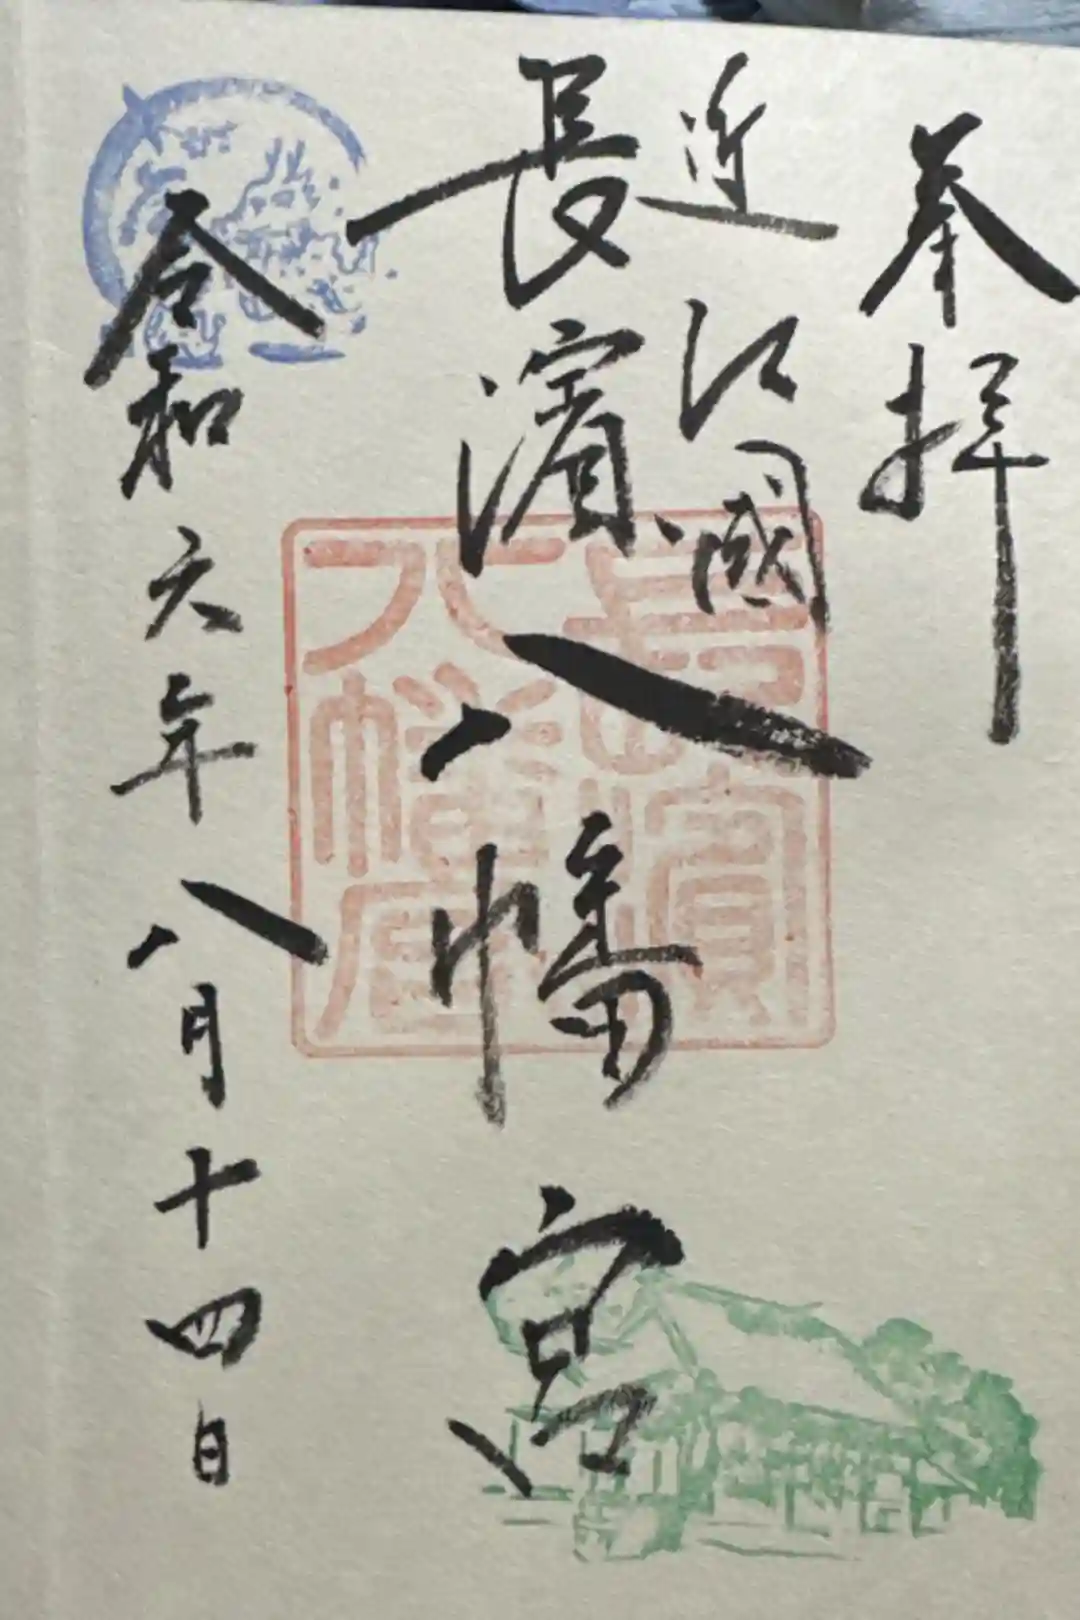 奉拝
近江國
長濱八幡宮
令和六年八月十四日
長濱
八幡宮